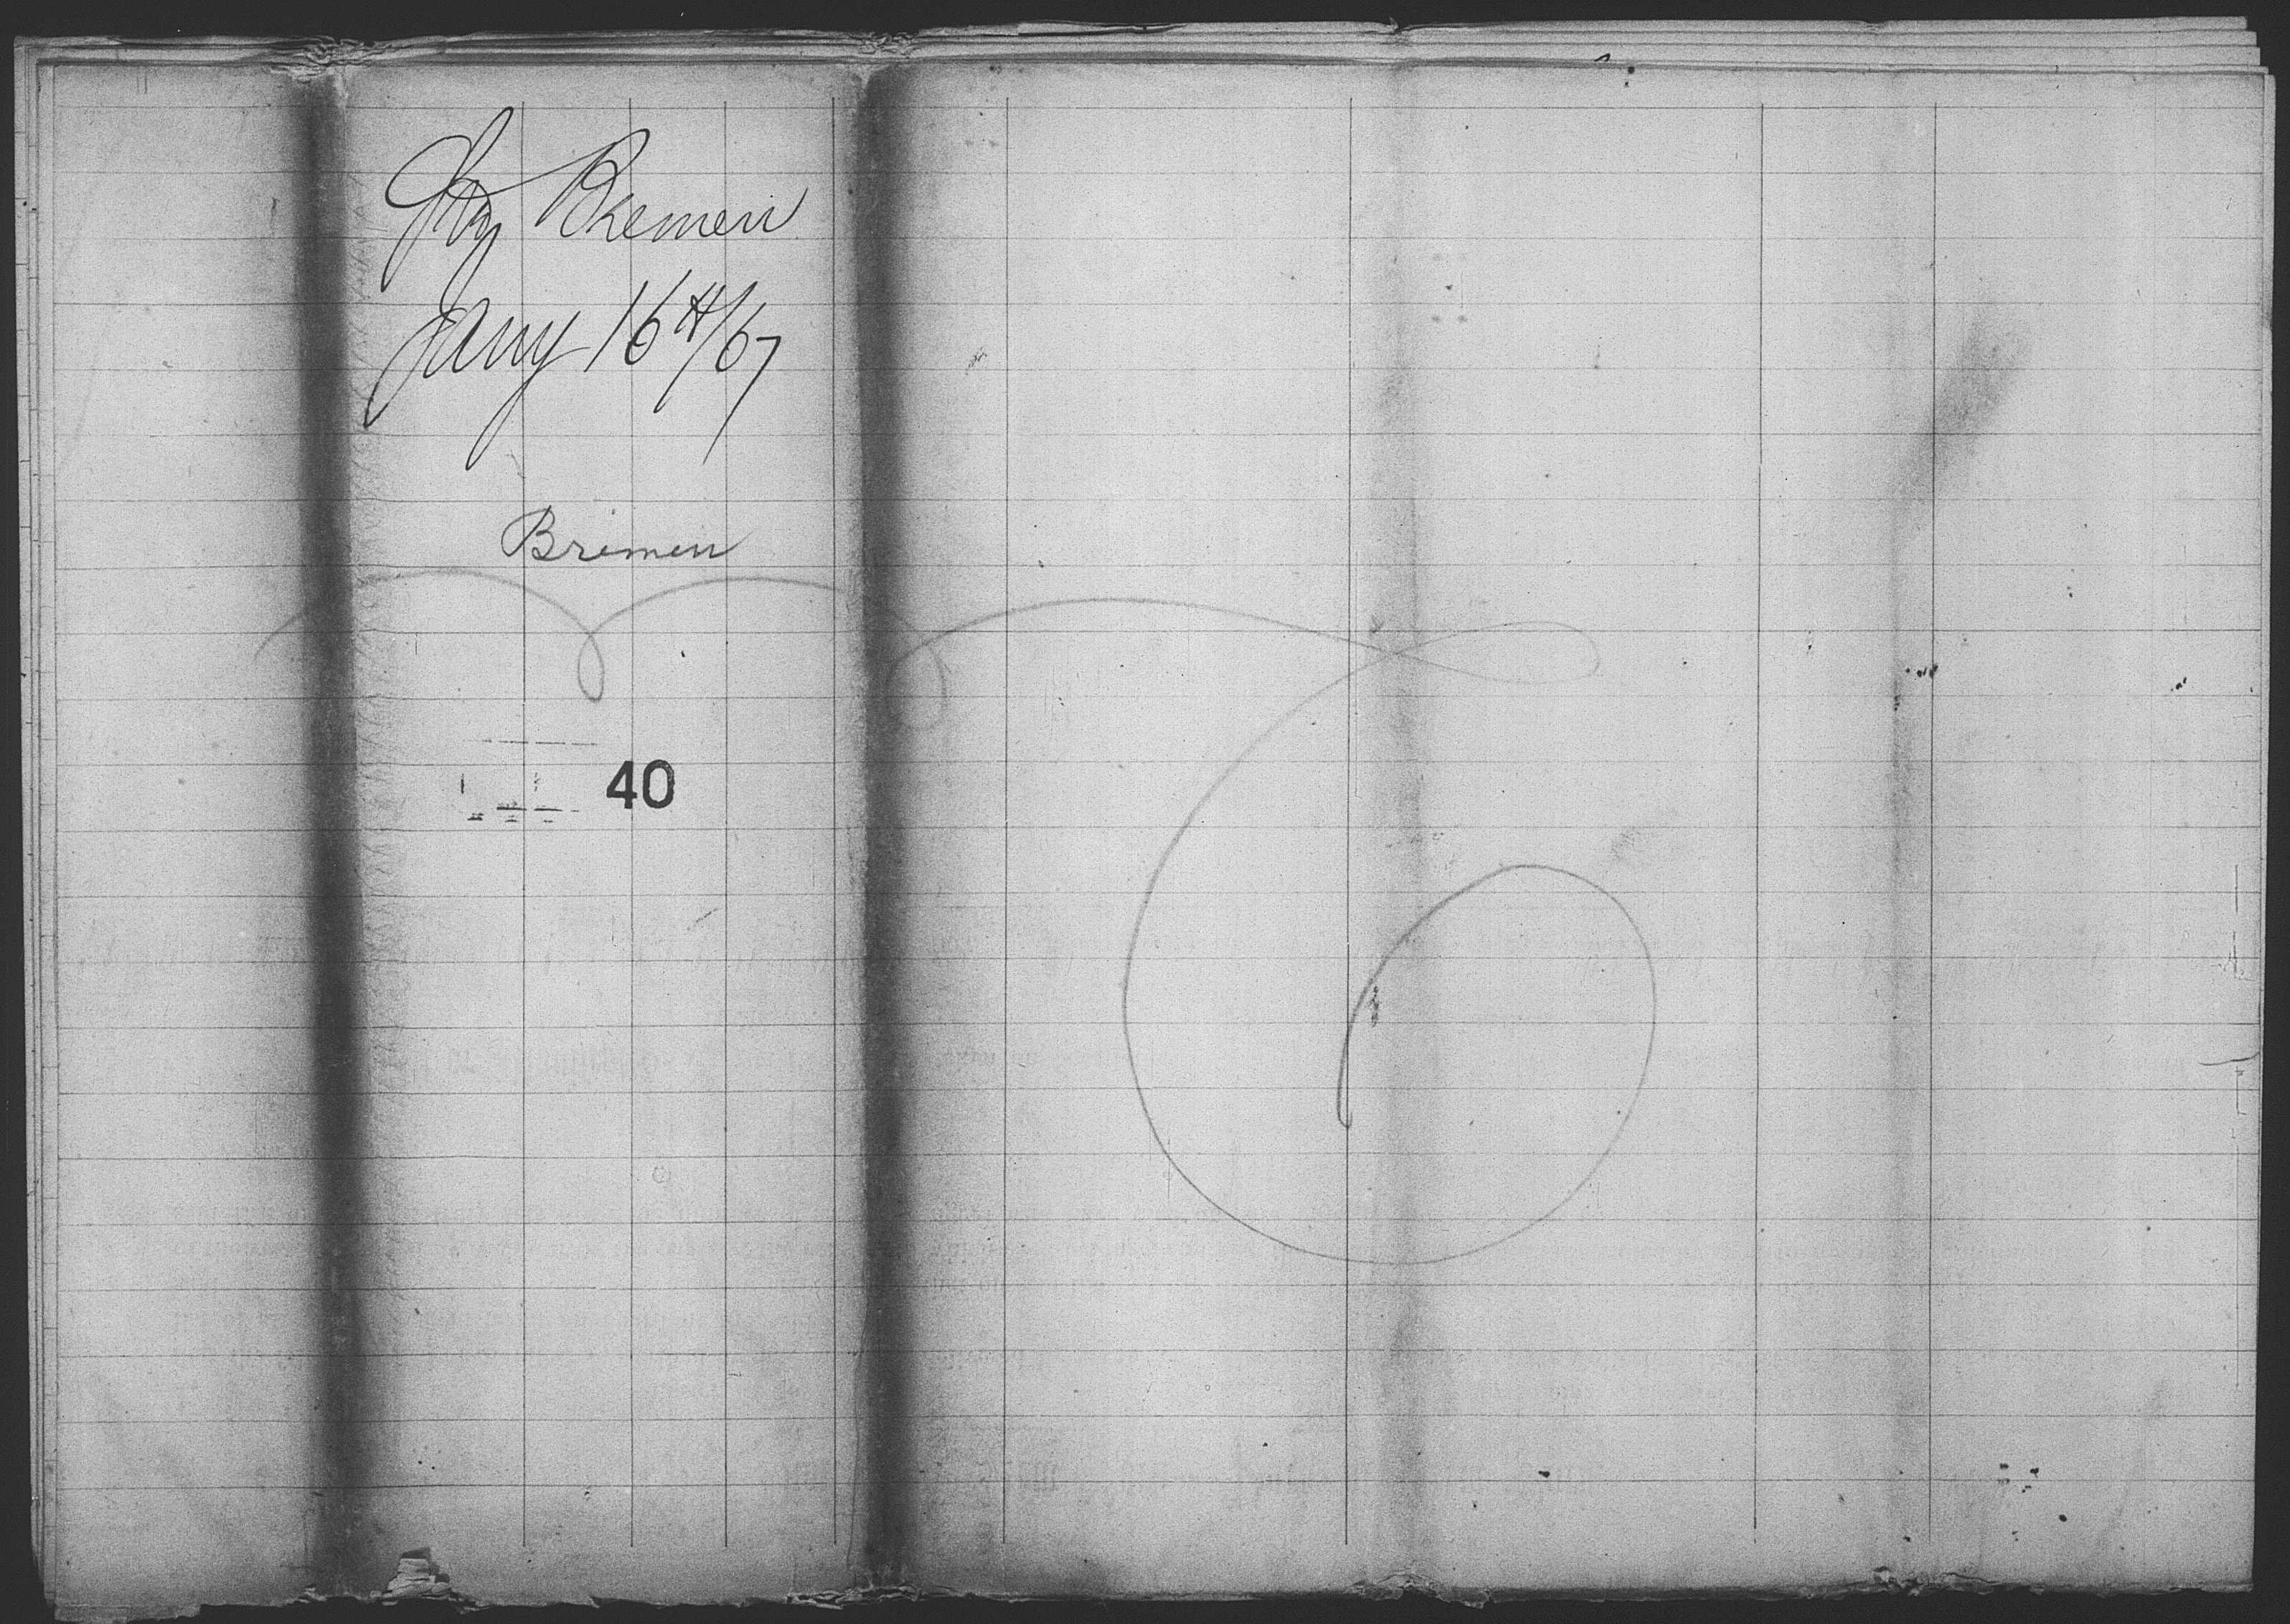 Bremen
Jany 16th/67
Bremen
40